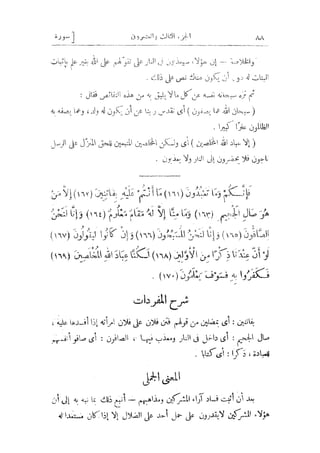 ٨٨ الجزء الثالث والعشرون [ سورة
والخلاصة — إن هؤلاء سيحضرون إلى النار على تقولهم على الله بغير علم بإثبات
البنات له دون أن يكون هناك نص على ذلك .
ثم نزه سبحانه نفسه عن كل ما لا يليق به من هذه النقائص فقال :
( سبحان الله عما يصفون ) أى تقدس ربنا عن أن يكون له ولد ، وعما يصفه به
الظالمون علوا كبيرا .
( إلا عباد الله المخلصين ) أى ولكن المخلصين المتبعين للحق المنزل على الرسل
ناجون فلا يحضرون إلى النار ولا يعذبون .
فَإِنَّكُمْ وَمَا تَعْبُدُونَ (١٦١) مَا أَنْتُمْ عَلَيْهِ بِفَاتِنِينَ (١٦٢) إِلَّا مَنْ
هُوَ صَالِ الْجَحِيمِ (١٦٣) وَمَا مِنَّا إِلَّا لَهُ مَقَامٌ مَعْلُومٌ (١٦٤) وَإِنَّا لَنَحْنُ
الصَّافُّونَ (١٦٥) وَإِنَّا لَنَحْنُ الْمُسَبِّحُونَ (١٦٦) وَإِنْ كَانُوا لَيَقُولُونَ (١٦٧)
لَوْ أَنَّ عِنْدَنَا ذِكْرًا مِنَ الْأَوَّلِينَ (١٦٨) لَكُنَّا عِبَادَ اللهِ الْمُخْلَصِينَ (١٦٩)
فَكَفَرُوا بِهِ فَسَوْفَ يَعْلَمُونَ (١٧٠) .
شرح المفردات
بفاتنين : أى بمضلين من قولهم فتن فلان على فلان امرأته إذا أفسدها عليه ،
صال الجحيم : أى داخل فى النار ومعذب فيها ، الصافون : أى صافو أنفسهم
للعبادة ، ذكرا : أى كتابا .
المعنى الجملى
بعد أن أثبت فساد آراء المشركين ومذاهبهم — أتبع ذلك بما نبه به إلى أن
هؤلاء المشركين لا يقدرون على حمل أحد على الضلال إلا إذا كان مستعدا له